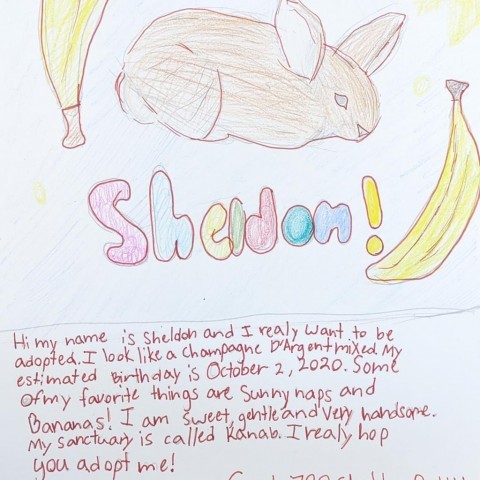 Sheldon!
Hi my name is Sheldon and I realy want to be
adopted. I look like a Champagne D'Argent mixed. My
estimated Birthday is October 2, 2020. Some
Of my favorite things are Sunny naps and
Bananas! I am Sweet, gentle and very handsome.
My sanctuary is called Kanab. I realy hop
you adopt me!